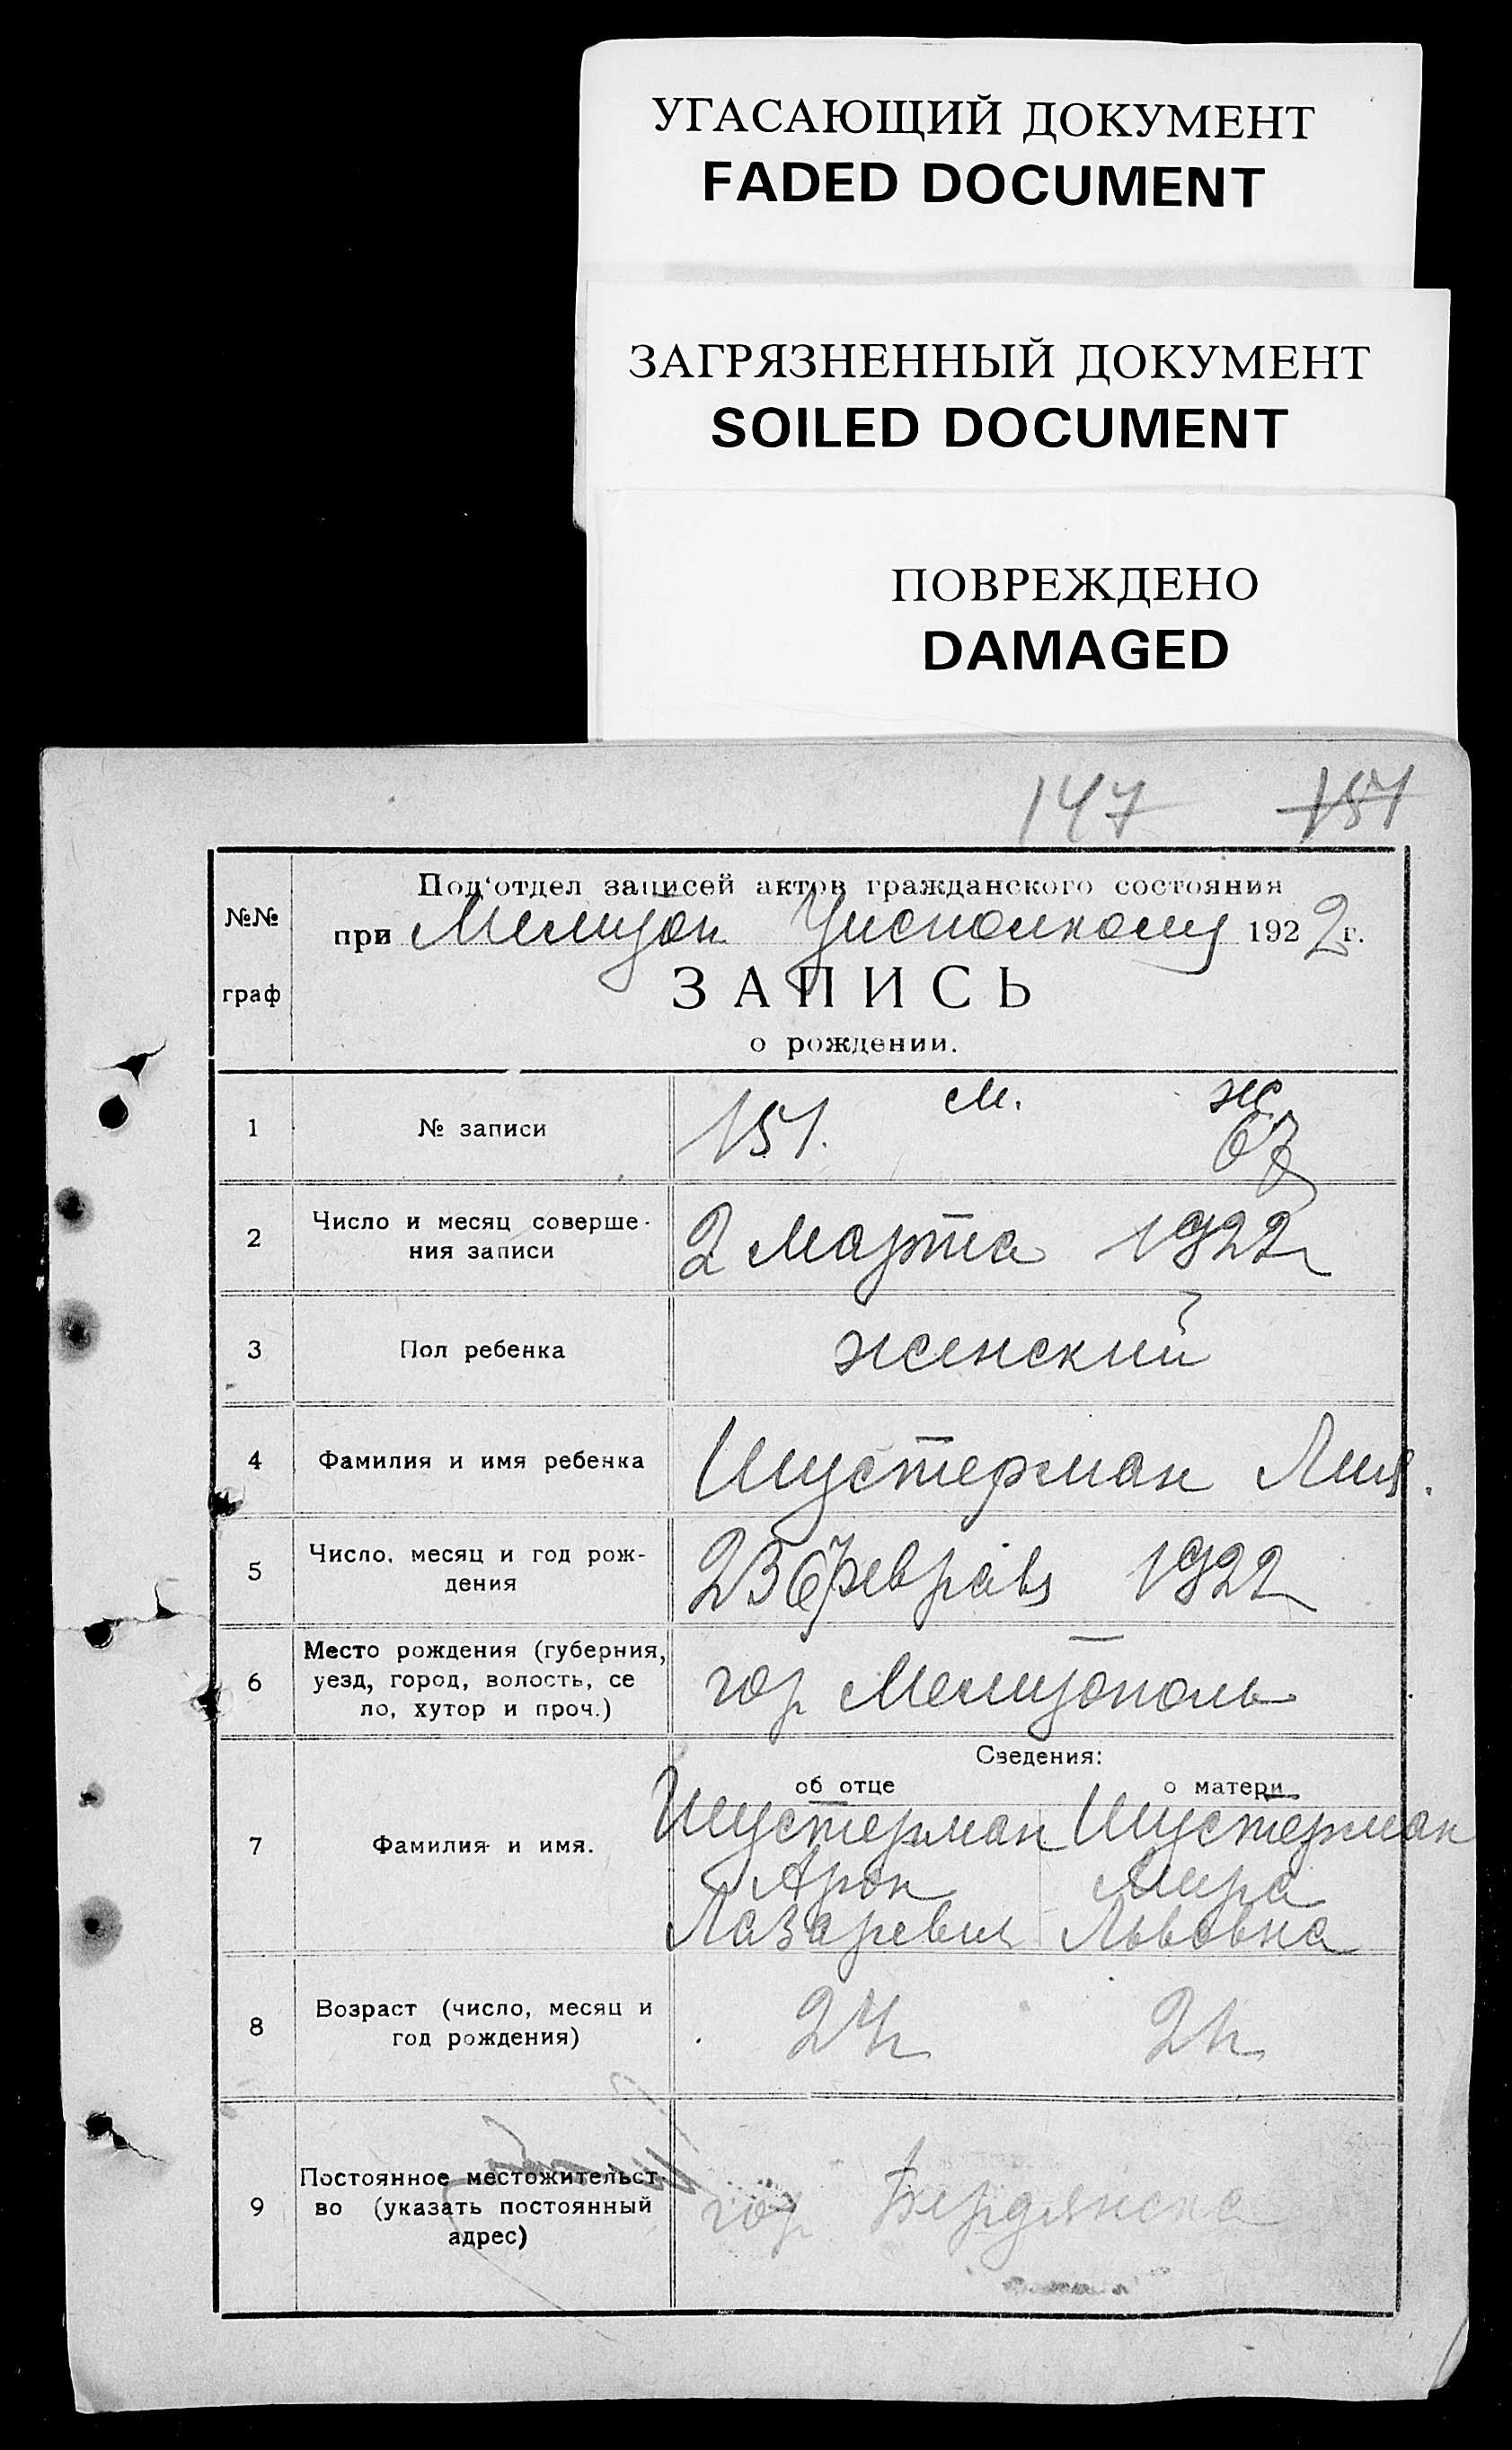 УГАСАЮЩИЙ ДОКУМЕНТ
FADED DOCUMENT
ЗАГРЯЗНЕННЫЙ ДОКУМЕНТ
SOILED DOCUMENT
ПОВРЕЖДЕНО
DAMAGED
147 151
№№ граф
Под'отдел записей актов гражданского состояния
при Мелитоп Уисполкому 1922 г.
ЗАПИСЬ
о рождении.
1 № записи 151. м. ж. 67
2 Число и месяц соверше-
ния записи 2 марта 1922
3 Пол ребенка женский
4 Фамилия и имя ребенка Шустерман Лия.
5 Число, месяц и год рож-
дения 23 февраля 1922
6 Место рождения (губерния,
уезд, город, волость, се
ло, хутор и проч.) гор Мелитополь
Сведения:
об отце о матери
7 Фамилия и имя. Шустерман Шустерман
Арон Мира
Лазаревич Львовна
8 Возраст (число, месяц и
год рождения)
9 Постоянное местожительст-
во (указать постоянный
адрес) гор Бердянске